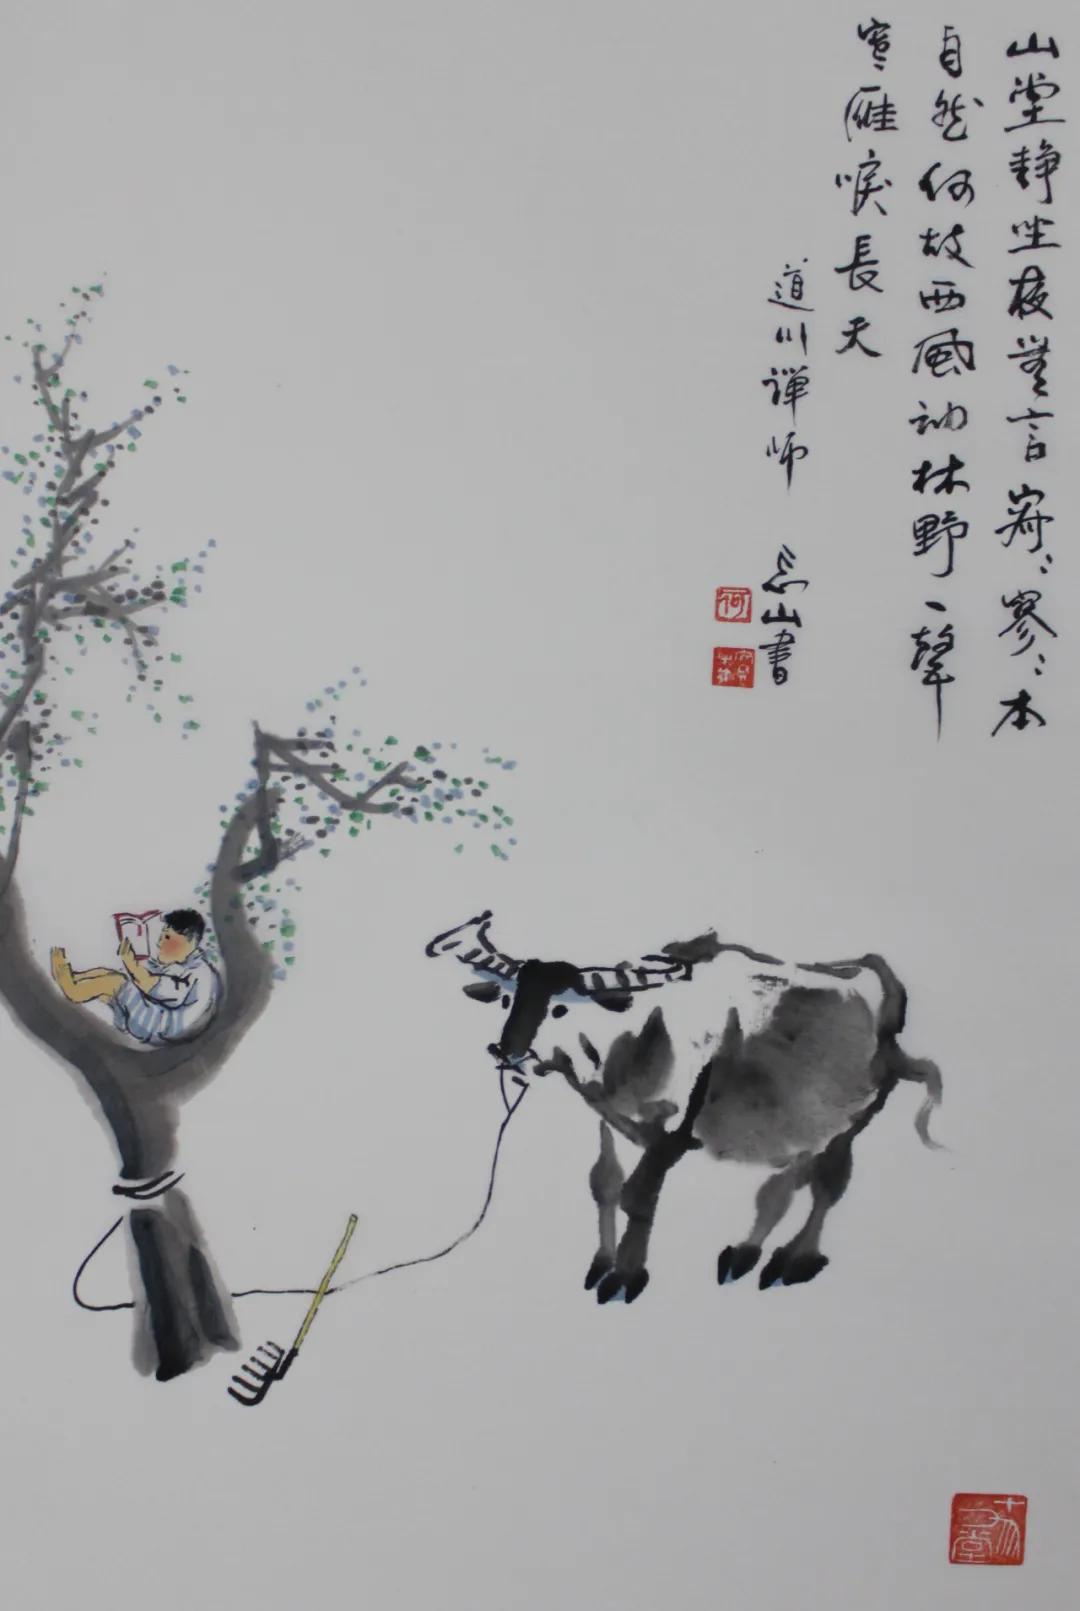 山堂静坐夜無言寂〻寥〻本
自然何故西風動林野一聲
寒雁唳長天
道川禪师 忘山書
何